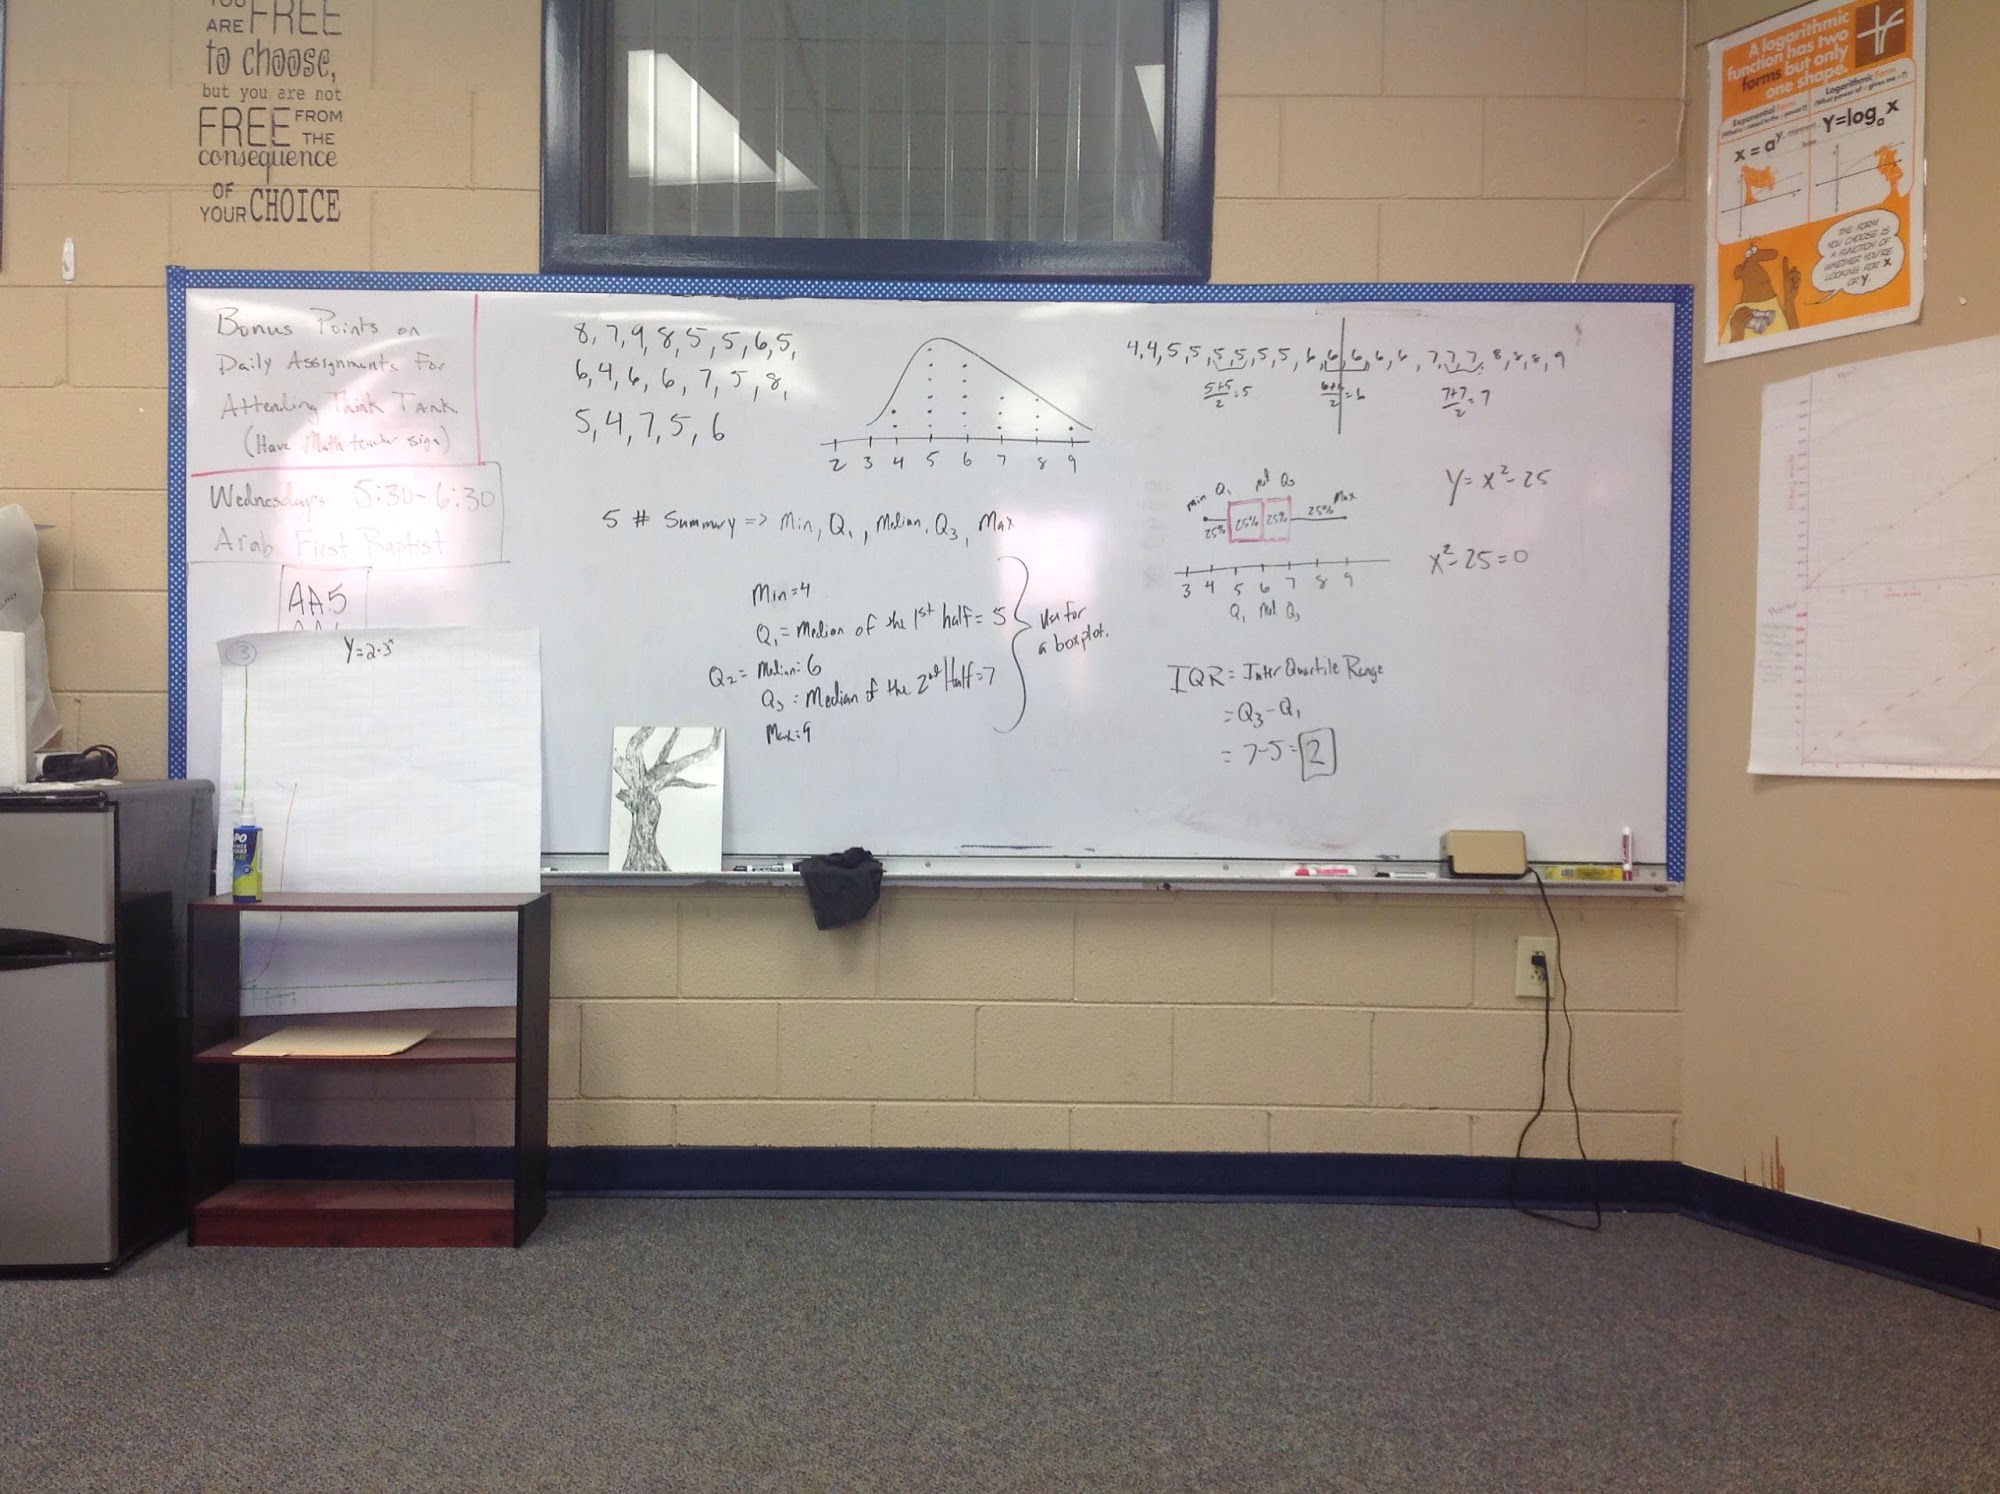 YOU
ARE FREE
to choose,
but you are not
FREE FROM
THE
consequence
OF
YOUR CHOICE
Bonus Points on
Daily Assignments For
Attending Think Tank
(Have Math teacher sign)
Wednesdays 5:30-6:30
Arab First Baptist
AA5
3
Y=2·3ˣ
8,7,9,8,5,5,6,5,
6,4,6,6,7,5,8,
5,4,7,5,6
2 3 4 5 6 7 8 9
5 # Summary => Min, Q₁, Median, Q₃, Max
Min=4
Q₁= Median of the 1st half= 5
Q₂= Median: 6
Q₃ = Median of the 2nd Half=7
Max=9
Use for
a boxplot.
4,4,5,5,5,5,5,5,6,6,6,6,6,7,7,7,8,8,8,9
5+5/2=5
6+6/2=6
7+7/2=7
min Q₁ Med Q₃ Max
25% 25% 25% 25%
3 4 5 6 7 8 9
Q₁ Med Q₃
IQR = Inter Quartile Range
= Q₃-Q₁
= 7-5=2
Y=x²-25
x²-25=0
A logarithmic
function has two
forms but only
one shape.
Exponential Form
Logarithmic Form
x = aʸ
Y=logₐx
THE FORM
YOU CHOOSE IS
A FUNCTION OF
WHETHER YOU'RE
LOOKING FOR X
OR Y.